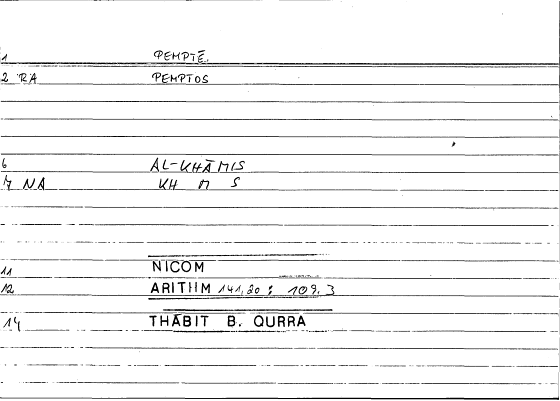 1 PEMPTĒ
2 RA PEMPTOS
6 AL-KHĀMIS
7 NA KH M S
11 NICOM
12 ARITHM 141,20 : 109,3
14 THĀBIT B. QURRA